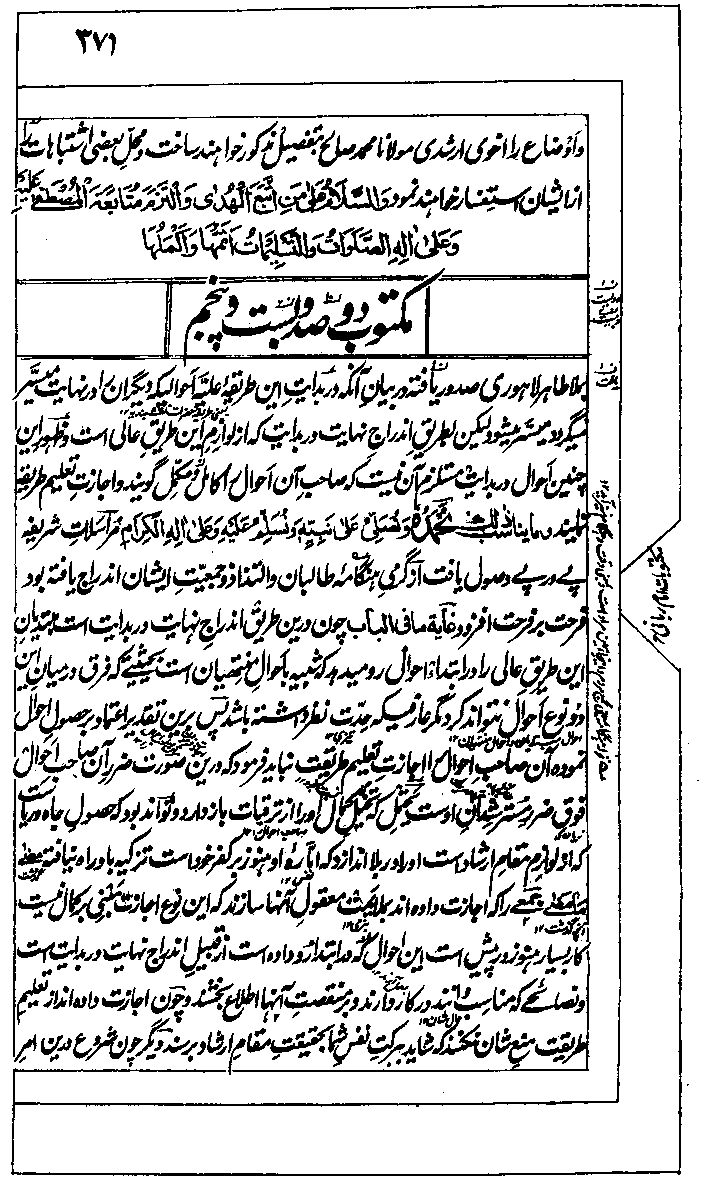 ۳۷۱
واوضاع را اخوی ارشدی مولانا محمد صالح بتفصیل مذکور خواهند ساخت و محل بعضی اشتباهات را
از ایشان استفسار خواهند نمود وَالسَّلَامُ عَلیٰ مَنِ اتَّبَعَ الْهُدیٰ وَالْتَزَمَ مُتَابَعَةَ الْمُصْطَفیٰ عَلَیْهِ
وَعَلیٰ اٰلِهِ الصَّلَوَاتُ وَالتَّسْلِیْمَاتُ اَتَمُّهَا وَاَکْمَلُهَا
مکتوب دو صد و بست و پنجم
بملا طاهر لاهوری صدور یافته در بیان آنکه در بدایت این طریقهٔ علیه احوالیکه دیگران را در نهایت میسّر
میگردد میسّر میشود لیکن بطریق اندراج نهایت در بدایت که از لوازم این طریق عالی است و ظهور این
چنین احوال در بدایت مستلزم آن نیست که صاحب آن احوال را کامل و مکمل گویند و اجازت تعلیم طریقه
نمایند و ما یناسب ذلک نَحْمَدُهٗ وَنُصَلِّیْ عَلیٰ نَبِیِّهٖ وَنُسَلِّمُ عَلَیْهِ وَعَلیٰ اٰلِهِ الْکِرَامِ مراسلات شریفه
پے در پے وصول یافت از گرمی هنگامهٔ طالبان و التذاذ و جمعیت ایشان اندراج یافته بود
فرحت بر فرحت افزود غایة ما فی الباب چون درین طریق اندراج نهایت در بدایت است مبتدیان
این طریق عالی را در ابتداء احوال رو میدهد که شبیه باحوال منتهیان است بحیثیتے که فرق درمیان این
دو نوع احوال نتواند کرد مگر عارفیکه حدت نظر داشته باشد پس برین تقدیر اعتماد بر حصول احوال
نموده آن صاحب احوال را اجازت تعلیم طریقت نباید فرمود که درین صورت ضرر آن صاحب احوال
فوق ضرر مسترشدان اوست یحتمل که تخیل کمال او را از ترقیات باز دارد و تواند بود که حصول جاه و ریاست
که از لوازم مقام ارشاد است او را در بلا اندازد که امّارهٔ او هنوز بر کفر خود است تزکیه باو راه نیافته
جمعے را که اجازت داده اند بملایمت معقول آنها سازند که این نوع اجازت مبنی بر کمال نیست
کار بسیار هنوز در پیش است این احوال که در ابتدا رو داده است از قبیل اندراج نهایت در بدایت است
و نصائحے که مناسب دانند در کار دارند و بر منقصت آنها اطلاع بخشند و چون اجازت داده اند از تعلیم
طریقت منع شان نکنند که شاید ببرکت نفس شما بحقیقت مقام ارشاد برسند دیگر چون شروع درین امر